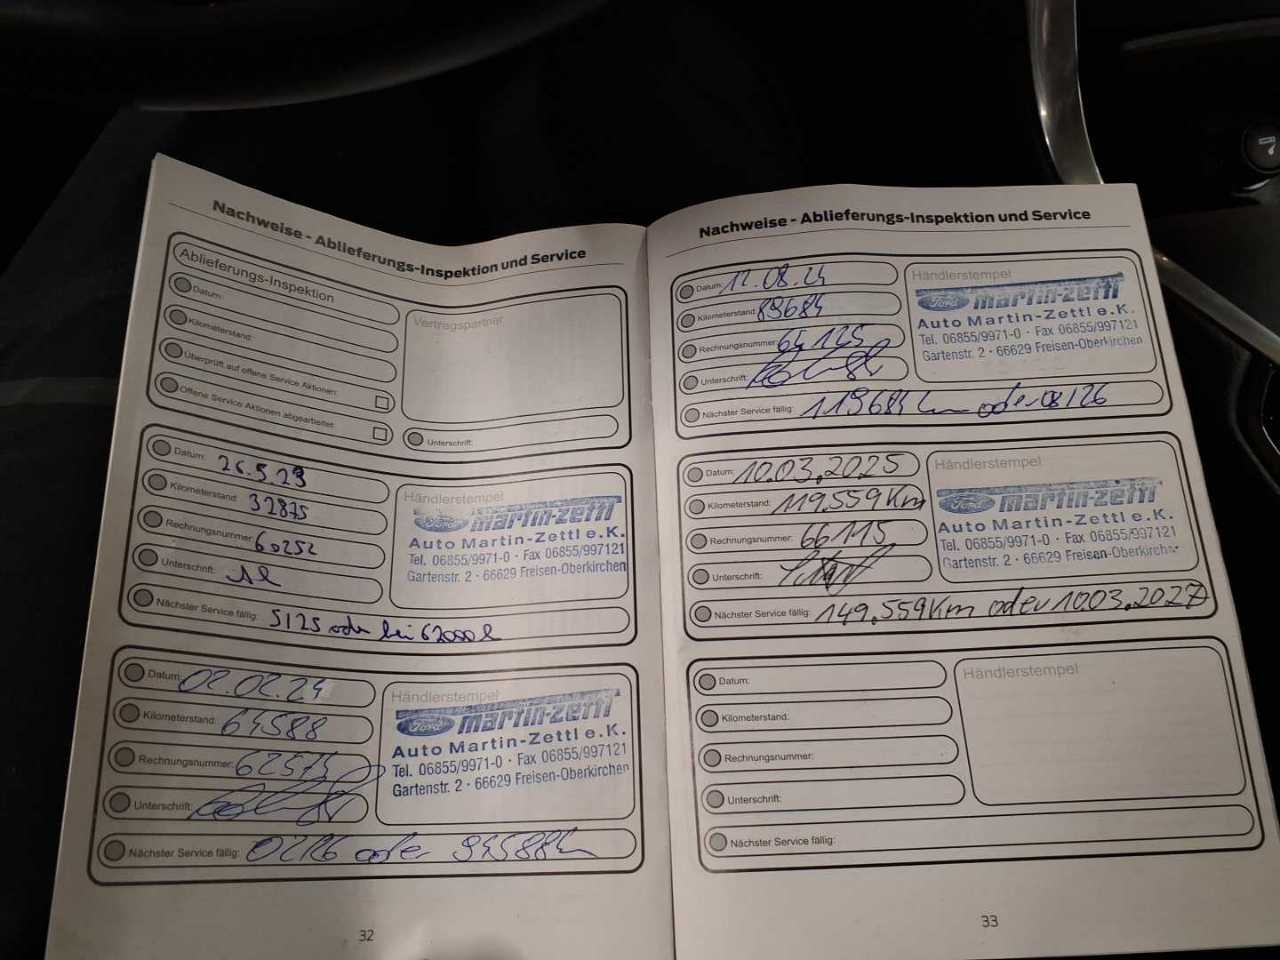 Nachweise - Ablieferungs-Inspektion und Service
Ablieferungs-Inspektion
Datum:
Kilometerstand:
Überprüft auf offene Service Aktionen:
Offene Service Aktionen abgearbeitet:
Vertragspartner
Unterschrift:
Datum: 26.5.23
Kilometerstand: 32875
Rechnungsnummer: 60252
Unterschrift:
Nächster Service fällig: 5125 oder bei 62000
Händlerstempel
Ford martin-zettl
Auto Martin-Zettl e.K.
Tel. 06855/9971-0 · Fax 06855/997121
Gartenstr. 2 · 66629 Freisen-Oberkirchen
Datum: 02.02.24
Kilometerstand: 64588
Rechnungsnummer: 62574
Unterschrift:
Nächster Service fällig: 02/26 oder 94588km
Händlerstempel
Ford martin-zettl
Auto Martin-Zettl e.K.
Tel. 06855/9971-0 · Fax 06855/997121
Gartenstr. 2 · 66629 Freisen-Oberkirchen
32
Nachweise - Ablieferungs-Inspektion und Service
Datum: 12.08.24
Kilometerstand: 89684
Rechnungsnummer: 64125
Unterschrift:
Nächster Service fällig: 119684 km oder 08/26
Händlerstempel
Ford martin-zettl
Auto Martin-Zettl e.K.
Tel. 06855/9971-0 · Fax 06855/997121
Gartenstr. 2 · 66629 Freisen-Oberkirchen
Datum: 10.03.2025
Kilometerstand: 119.559 Km
Rechnungsnummer: 66115
Unterschrift:
Nächster Service fällig: 149.559 Km oder 10.03.2027
Händlerstempel
Ford martin-zettl
Auto Martin-Zettl e.K.
Tel. 06855/9971-0 · Fax 06855/997121
Gartenstr. 2 · 66629 Freisen-Oberkirchen
Datum:
Kilometerstand:
Rechnungsnummer:
Unterschrift:
Nächster Service fällig:
Händlerstempel
33